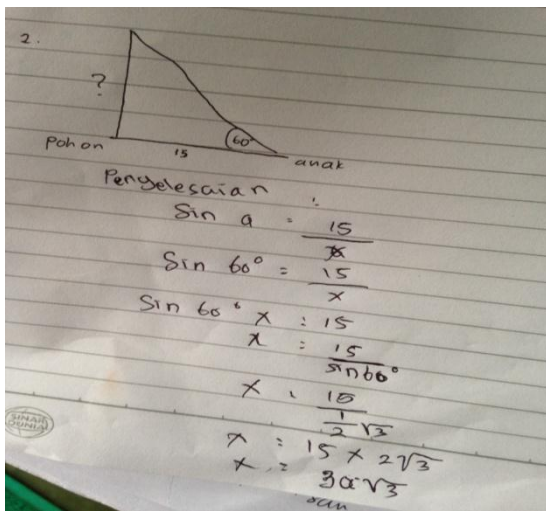 2.
?
60°
Pohon 15 anak
Penyelesaian :
Sin a = 15
x
Sin 60° = 15
x
Sin 60° x = 15
x = 15
sin 60°
x = 15
1/2 √3
x = 15 x 2√3
x = 30√3
SINAR DUNIA